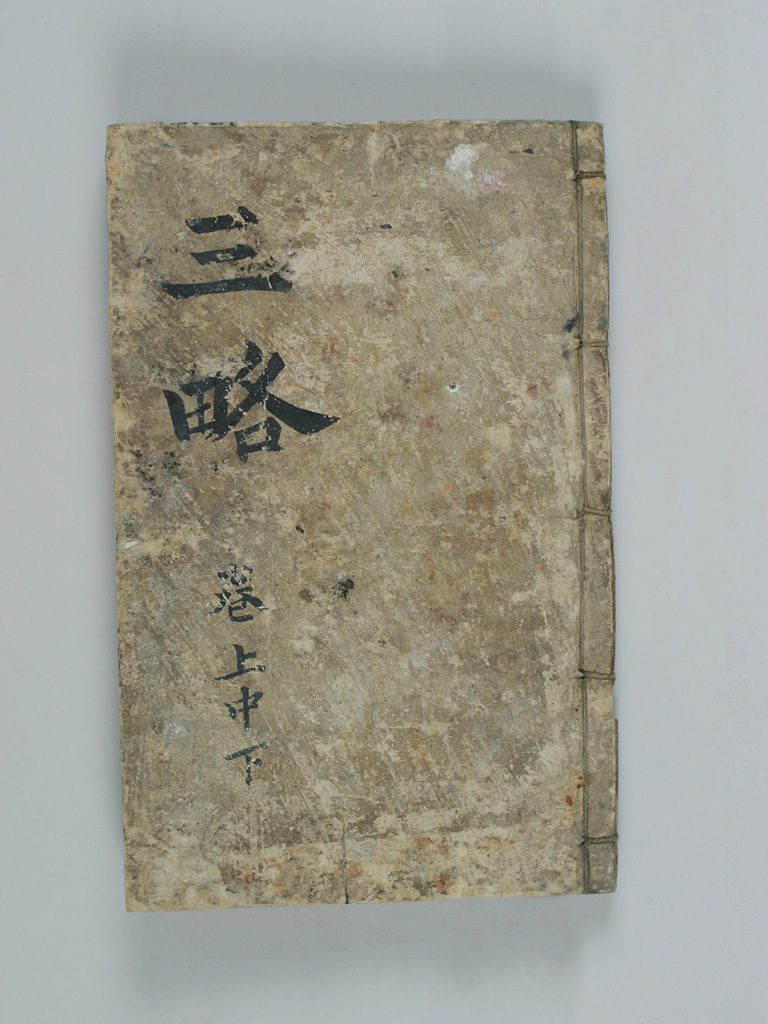 三略
卷上中下